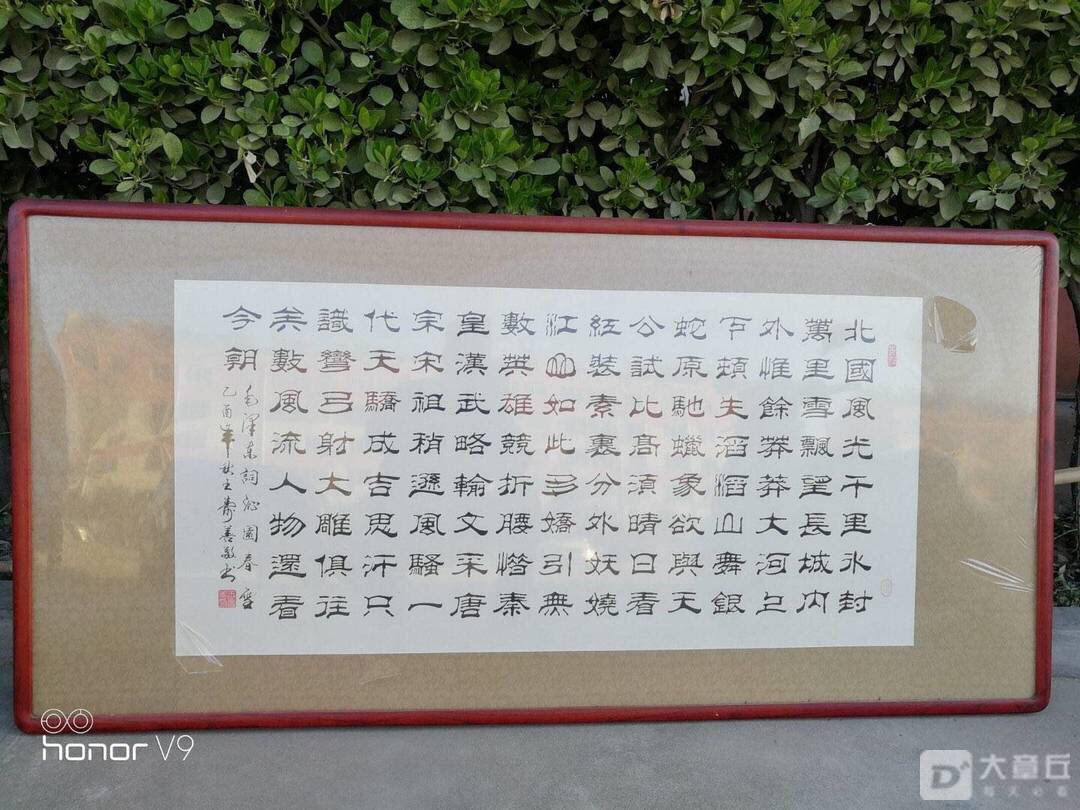 北國風光千里氷封
萬里雪飄望長城内
外惟餘莽莽大河上
下頓失滔滔山舞銀
蛇原馳蠟象欲與天
公試比高須晴日看
紅裝素裹分外妖嬈
江山如此多嬌引無
數英雄競折腰惜秦
皇漢武略輸文采唐
宗宋祖稍遜風騷一
代天驕成吉思汗只
識彎弓射大雕俱往
矣數風流人物還看
今朝
毛澤東詞沁園春雪
乙酉年秋王壽善敬书
honor V9
大章丘
每天必看